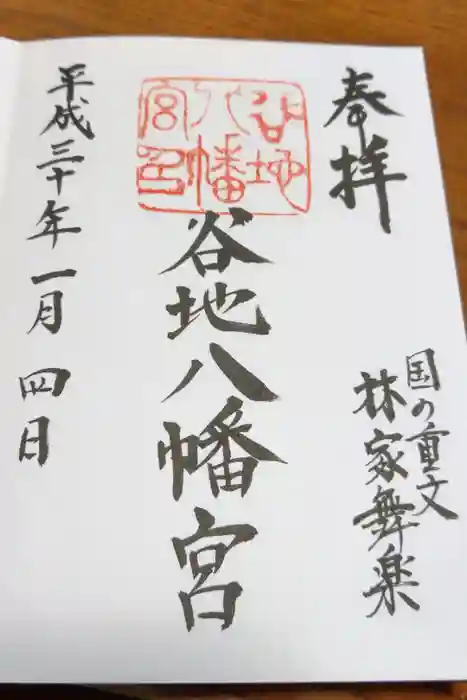 奉拝
国の重文
林家舞楽
谷地八幡宮
谷地
八幡
宮印
平成三十年一月四日